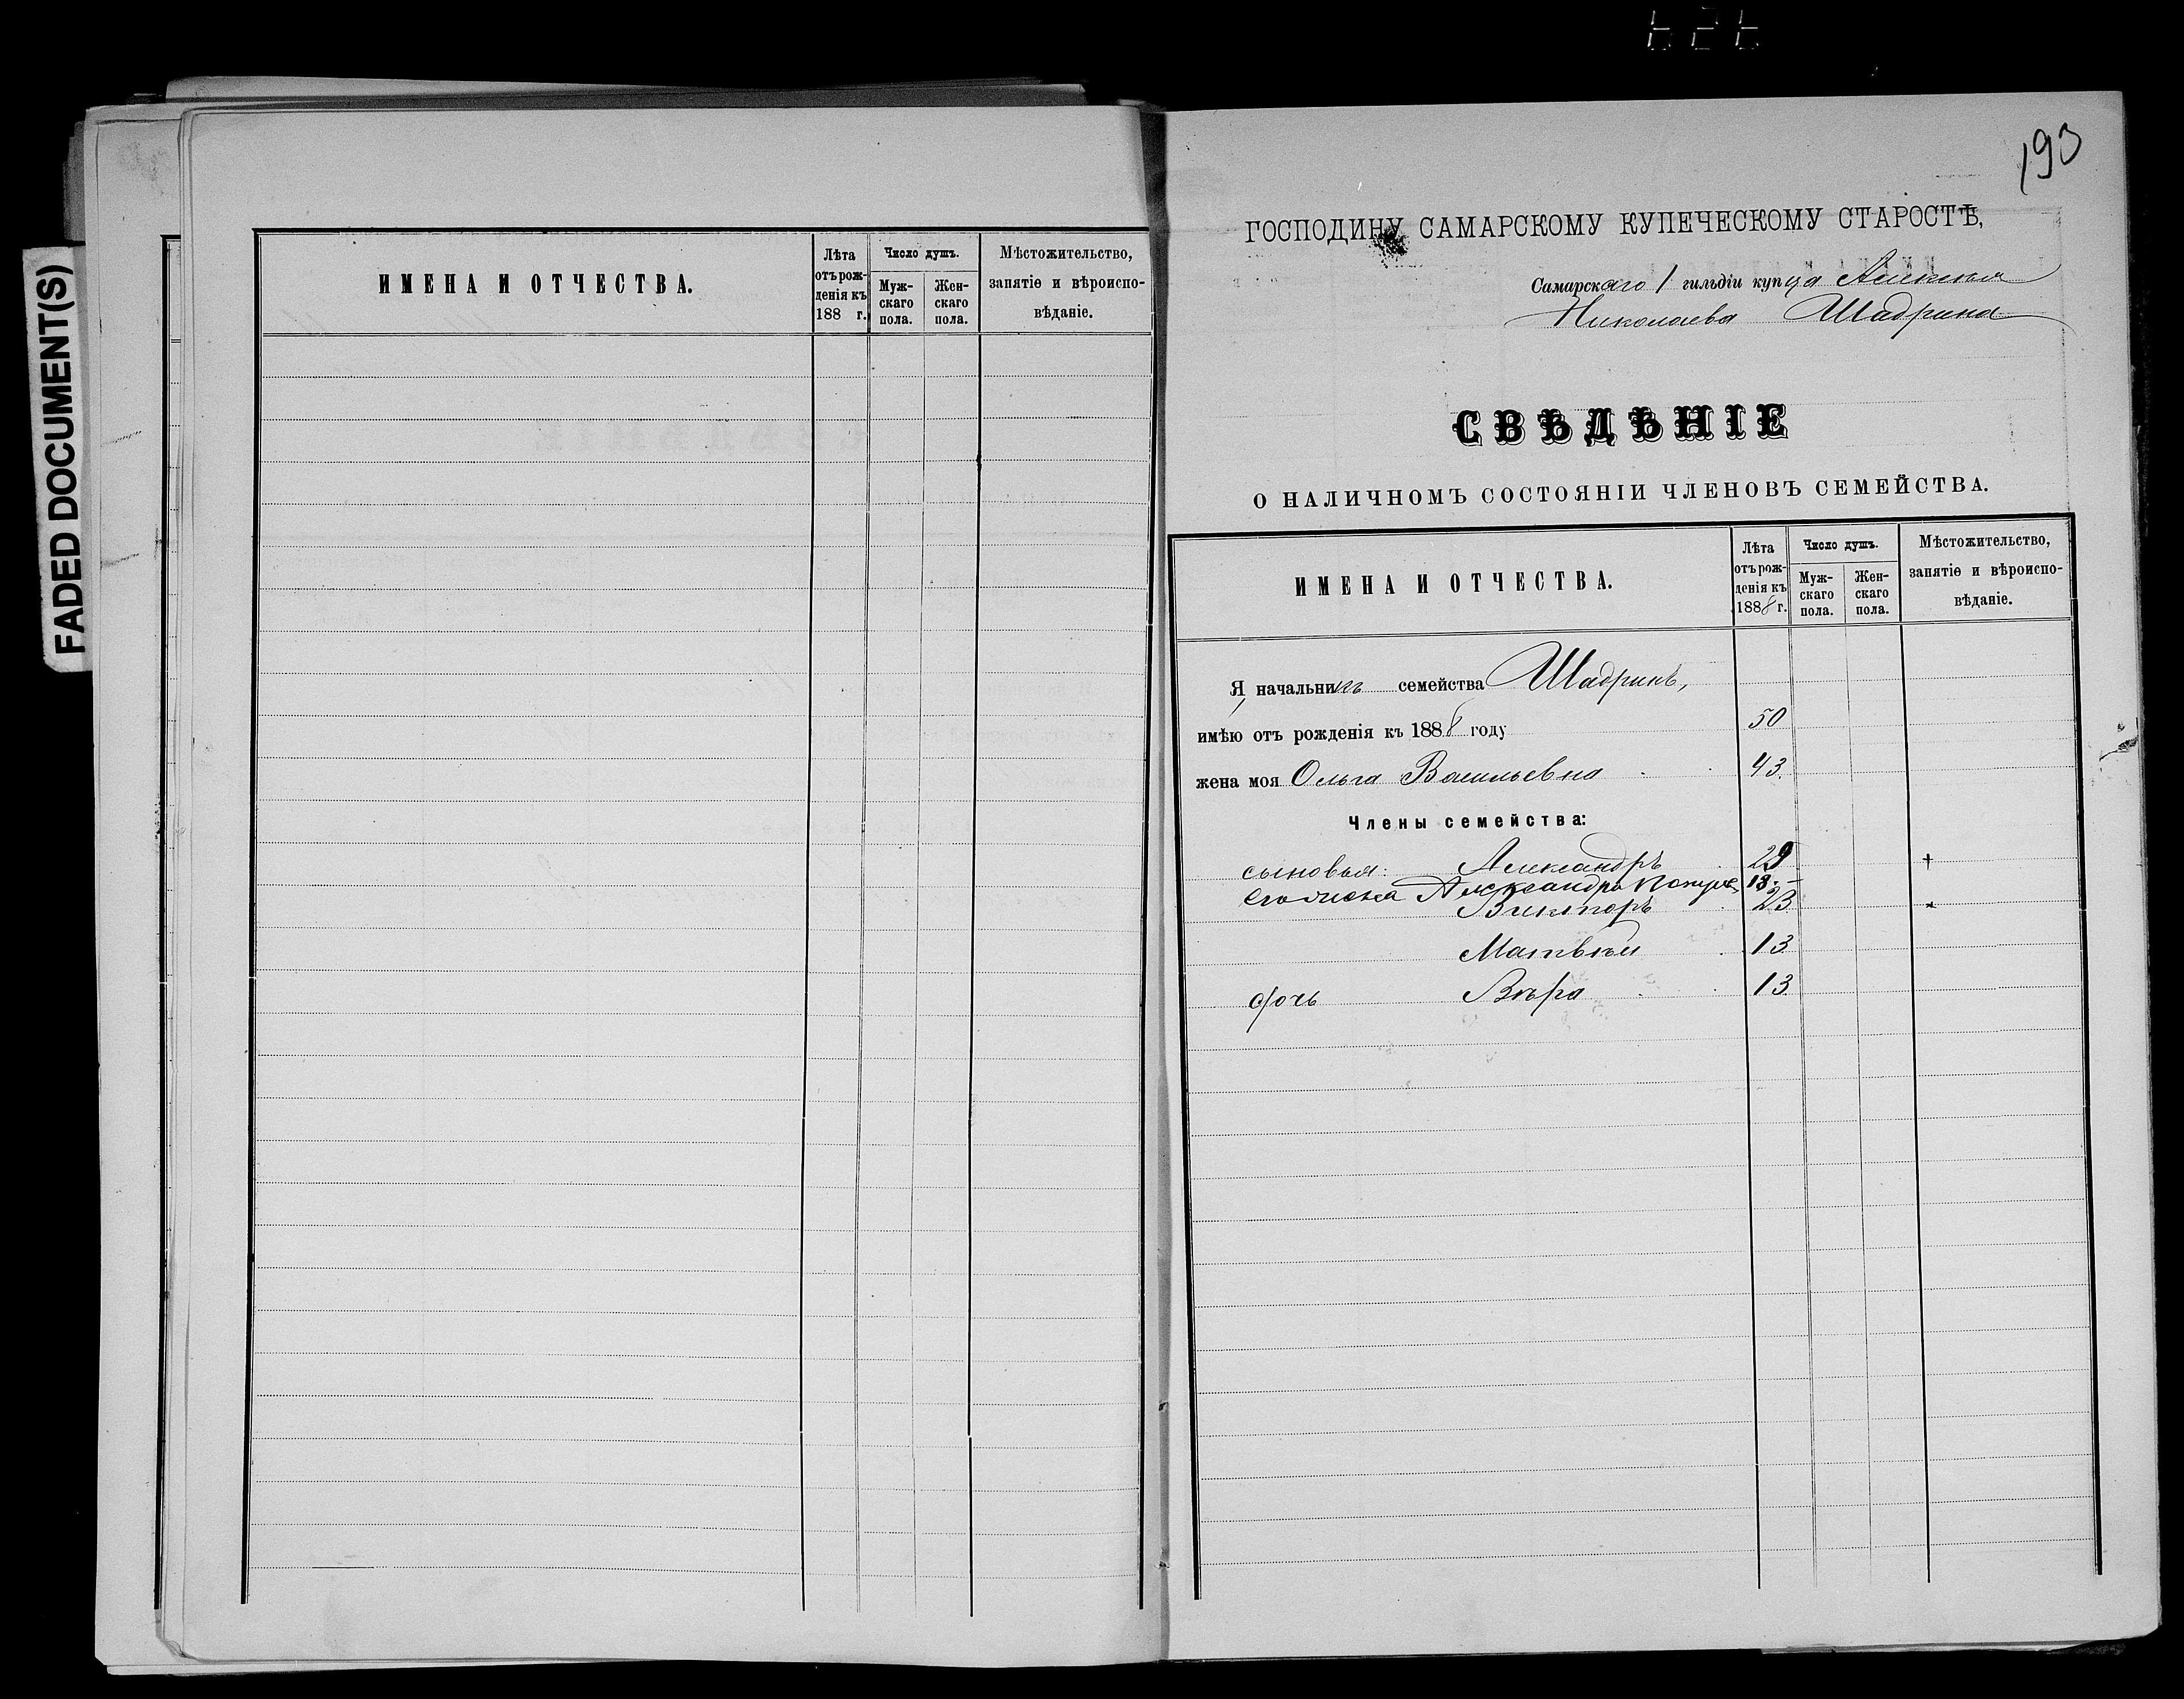 FADED DOCUMENT(S)
ИМЕНА И ОТЧЕСТВА.
Лѣта отъ рож-
денія къ
188 г.
Число душъ.
Муж-
скаго
пола.
Жен-
скаго
пола.
Мѣстожительство,
занятіе и вѣроиспо-
вѣданіе.
193
ГОСПОДИНУ САМАРСКОМУ КУПЕЧЕСКОМУ СТАРОСТѢ,
Самарскаго 1 гильдіи купца Алексѣя
Николаева Шадрина
СВѢДѢНІЕ
О НАЛИЧНОМЪ СОСТОЯНІИ ЧЛЕНОВЪ СЕМЕЙСТВА.
ИМЕНА И ОТЧЕСТВА.
Лѣта
отъ рож-
денія къ
1888 г.
Число душъ.
Муж-
скаго
пола.
Жен-
скаго
пола.
Мѣстожительство,
занятіе и вѣроиспо-
вѣданіе.
Я, начальникъ семейства Шадринъ,
имѣю отъ рожденія къ 1888 году 50
жена моя Ольга Васильевна 43.
Члены семейства:
сыновья: Александръ 29 +
его жена Александра 18.
Викторъ 23
Матвѣй 13
дочь Вѣра 13